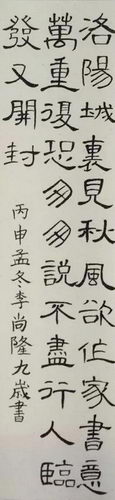 洛陽城裏見秋風欲作家書意
萬重復恐匆匆說不盡行人臨
發又開封
丙申孟冬李尚隆九歲書